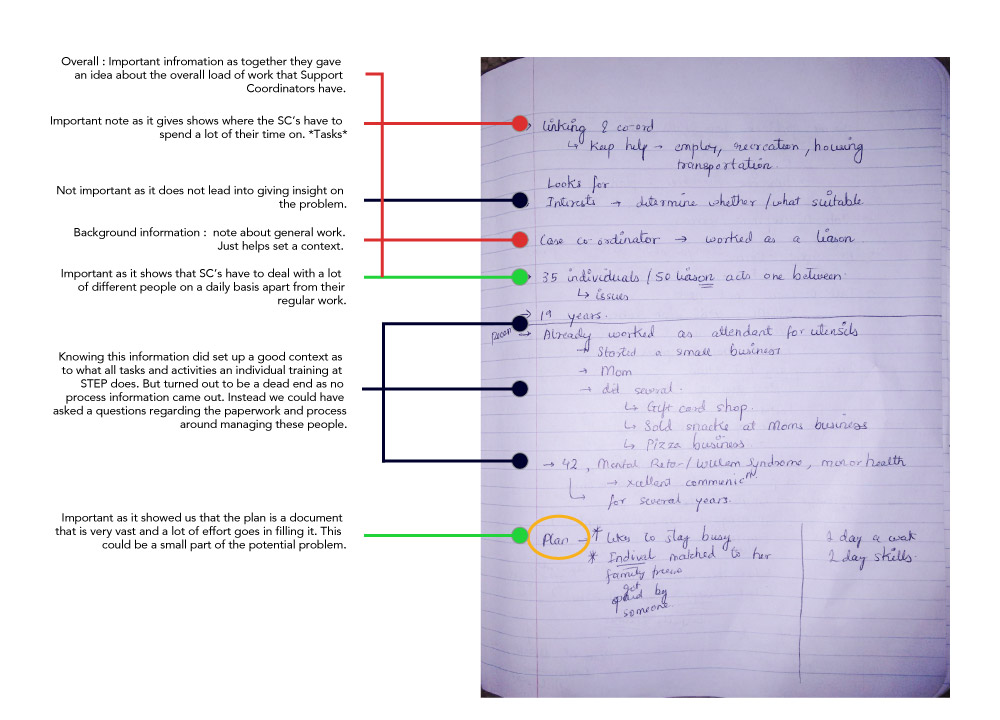 Overall : Important infromation as together they gave
an idea about the overall load of work that Support
Coordinators have.
Important note as it gives shows where the SC's have to
spend a lot of their time on. *Tasks*
Not important as it does not lead into giving insight on
the problem.
Background information : note about general work.
Just helps set a context.
Important as it shows that SC's have to deal with a lot
of different people on a daily basis apart from their
regular work.
Knowing this information did set up a good context as
to what all tasks and activities an individual training at
STEP does. But turned out to be a dead end as no
process information came out. Instead we could have
asked a questions regarding the paperwork and process
around managing these people.
Important as it showed us that the plan is a document
that is very vast and a lot of effort goes in filling it. This
could be a small part of the potential problem.
linking & co-ord
↳ Keep help → employ, recreation, housing
transportation.
Looks for
Interests → determine whether/what suitable
Case co-ordinator → worked as a liason
35 individuals / 50 liason acts one between
↳ issues
→ 19 years.
→ Already worked as attendant for utensils
→ Started a small business
→ Mom
→ did several
↳ Gift card shop.
↳ Sold snacks at Moms business
↳ Pizza business
→ 42, Mental Retar / Syndrome, motor health
→ xcellent communic
for several years.
Plan → * likes to stay busy
* Indival matched to her
family
get
paid by
someone.
1 day a wek
2 day skills